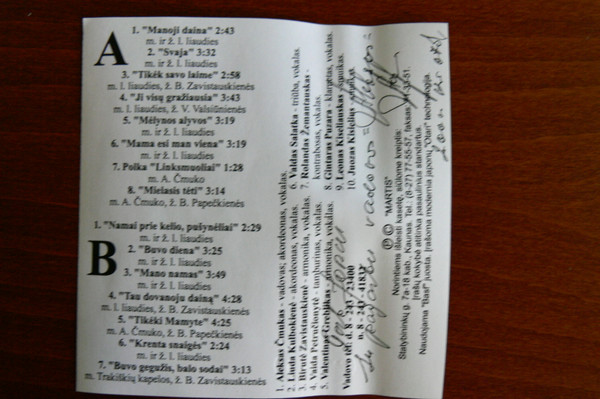 A
1. "Manoji daina" 2:43
m. ir ž. l. liaudies
2. "Svaja" 3:32
m. ir ž. l. liaudies
3. "Tikėk savo laime" 2:58
m. l. liaudies, ž. B. Zavistauskienės
4. "Ji visų gražiausia" 3:43
m. l. liaudies, ž. V. Valsiūnienės
5. "Mėlynos alyvos" 3:19
m. ir ž. l. liaudies
6. "Mama esi man viena" 3:19
m. ir ž. l. liaudies
7. Polka "Linksmuoliai" 1:28
m. A. Čmuko
8. "Mielasis tėti" 3:14
m. A. Čmuko, ž. B. Papečkienės
B
1. "Namai prie kelio, pušynėliai" 2:29
m. ir ž. l. liaudies
2. "Buvo diena" 3:25
m. ir ž. l. liaudies
3. "Mano namas" 3:49
m. ir ž. l. liaudies
4. "Tau dovanoju dainą" 4:28
m. l. liaudies, ž. B. Zavistauskienės
5. "Tikėki Mamyte" 4:25
m. A. Čmuko, ž. B. Papečkienės
6. "Krenta snaigės" 2:24
m. ir ž. l. liaudies
7. "Buvo gegužis, balo sodai" 3:13
m. Trakiškių kapelos, ž. B. Zavistauskienės
1. Aleksas Čmukas - vadovas; akordeonas, vokalas.
2. Liuda Kulbokienė - akordeonas, vokalas.
3. Birutė Zavistauskienė - armonika, vokalas.
4. Vaida Petročionytė - tamburinas, vokalas.
5. Valentinas Greblikas - armonika, vokalas.
6. Vaidas Salatka - triūba, vokalas.
7. Rolandas Zemantauskas -
kontrabosas, vokalas.
8. Gintaras Puzara - klarnetas, vokalas.
9. Leonas Kiseliauskas
10. Juozas
Vadovo tel. d. 8 - 247 23400
n. 8 - 247 41832
Ⓟ © "MARTIS"
Norintiems išleisti kasetę, siūlome kreiptis:
Statybininkų g. 7a-18 kab., Kaunas. Tel.: (8-27) 77-55-57, faksas
Įrašų kokybė atitinka pasaulinius standartus.
Naudojama "Basf" juosta. Įrašoma modernia japonų "Otari" technologija.